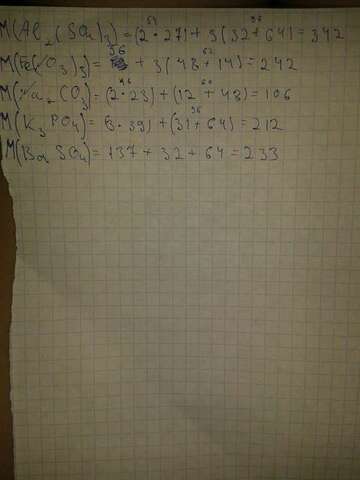 M(Al₂(SO₄)₃) = (2 · 27) 54 + 3(32 + 64) 96 = 342
M(Fe(NO₃)₃) = 56 + 3(48 + 14) 62 = 242
M(Na₂CO₃) = (2 · 23) 46 + (12 + 48) 60 = 106
M(K₃PO₄) = (3 · 39) + (31 + 64) 95 = 212
M(BaSO₄) = 137 + 32 + 64 = 233